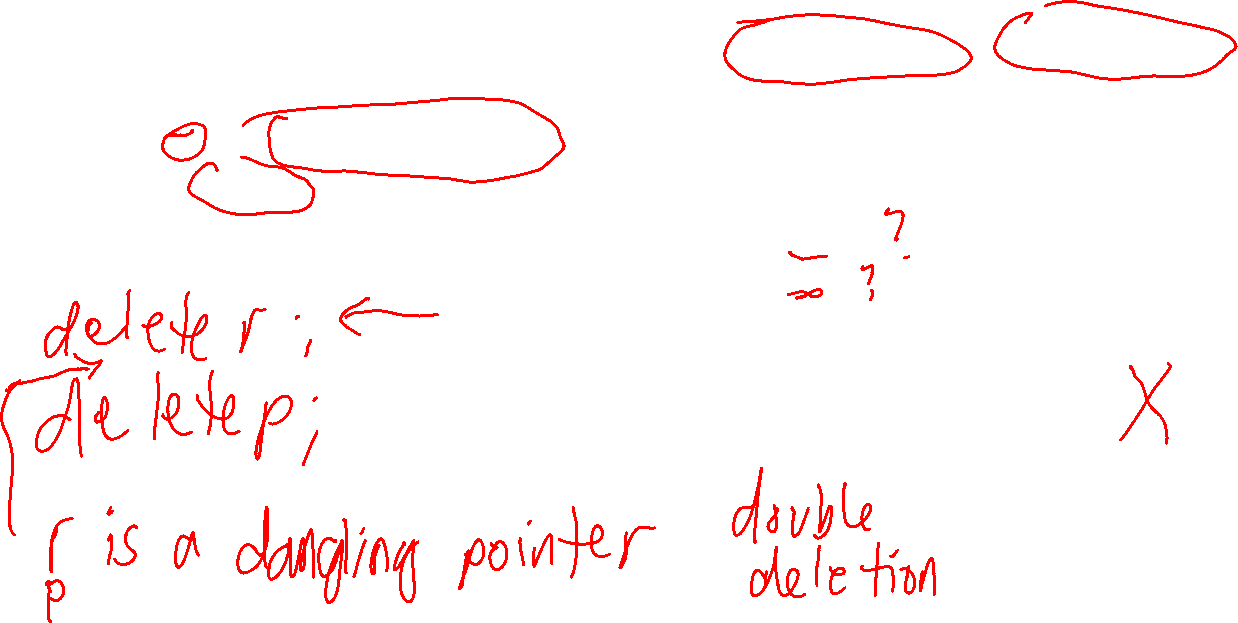 = ?
?
delete r;
delete p;
r is a dangling pointer
p
double
deletion
X